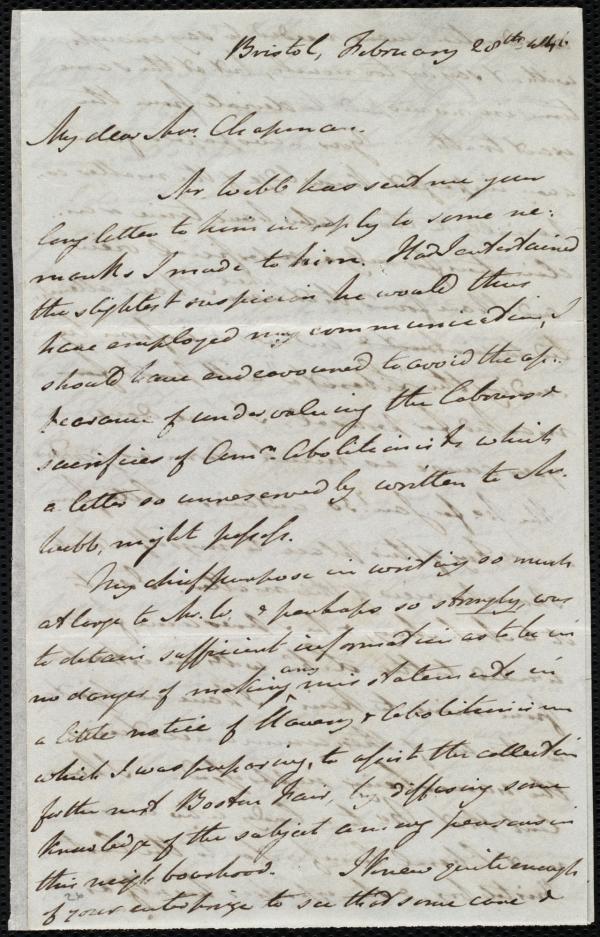 Bristol, February 28th 1846
My dear Mrs Chapman.
Mr. Webb has sent me your
long letter to him in reply to some re:
marks I made to him. Had I entertained
the slightest suspicion he would thus
have employed my communication, I
should have endeavoured to avoid the ap:
pearance of undervaluing the labours &
sacrifices of Amn. Abolitionists which
a letter so unreservedly written to Mr.
Webb, might possess.
My chief purpose in writing so much
at large to Mr. W. & perhaps so strongly, was
to obtain sufficient information as to be in
no danger of making any misstatements in
a little notice of Slavery & Abolitionism
which I was preparing, to assist the collection
for the next Boston Fair, by diffusing some
knowledge of the subject among persons in
this neighbourhood. I knew quite enough
of your enterprize to see that some care &